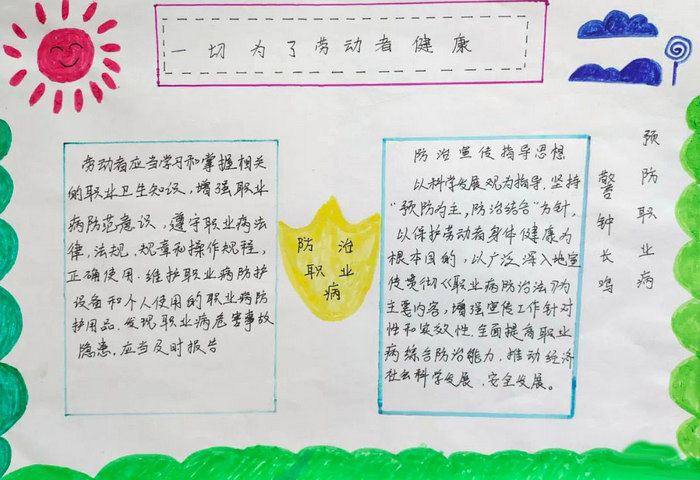 一切为了劳动者健康
劳动者应当学习和掌握相关
的职业卫生知识，增强职业
病防范意识，遵守职业病法
律，法规，规章和操作规程，
正确使用、维护职业病防护
设备和个人使用的职业病防
护用品、发现职业病危害事故
隐患，应当及时报告
防治
职业
病
防治宣传指导思想
以科学发展观为指导，坚持
“预防为主，防治结合”方针，
以保护劳动者身体健康为
根本目的，以广泛深入地宣
传贯彻《职业病防治法》为
主要内容，增强宣传工作针对
性和实效性，全面提高职业
病综合防治能力，推动经济
社会科学发展、安全发展。
预防职业病
警钟长鸣